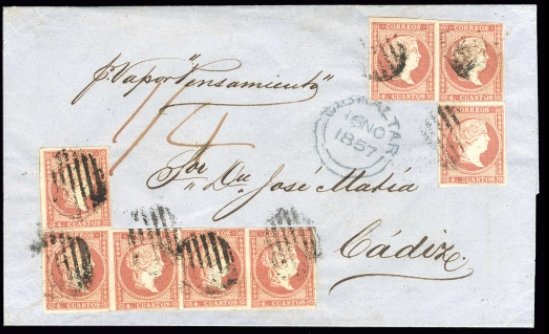 p. Vapor "Pensamiento"
CORREOS
CORREOS
4 CUARTOS
4 CUARTOS
GIBRALTAR
NO
1857
4 CUARTOS
Sor. Dn. José María
4 CUARTOS
Cádiz
4 CUARTOS
4 CUARTOS
4 CUARTOS
4 CUARTOS